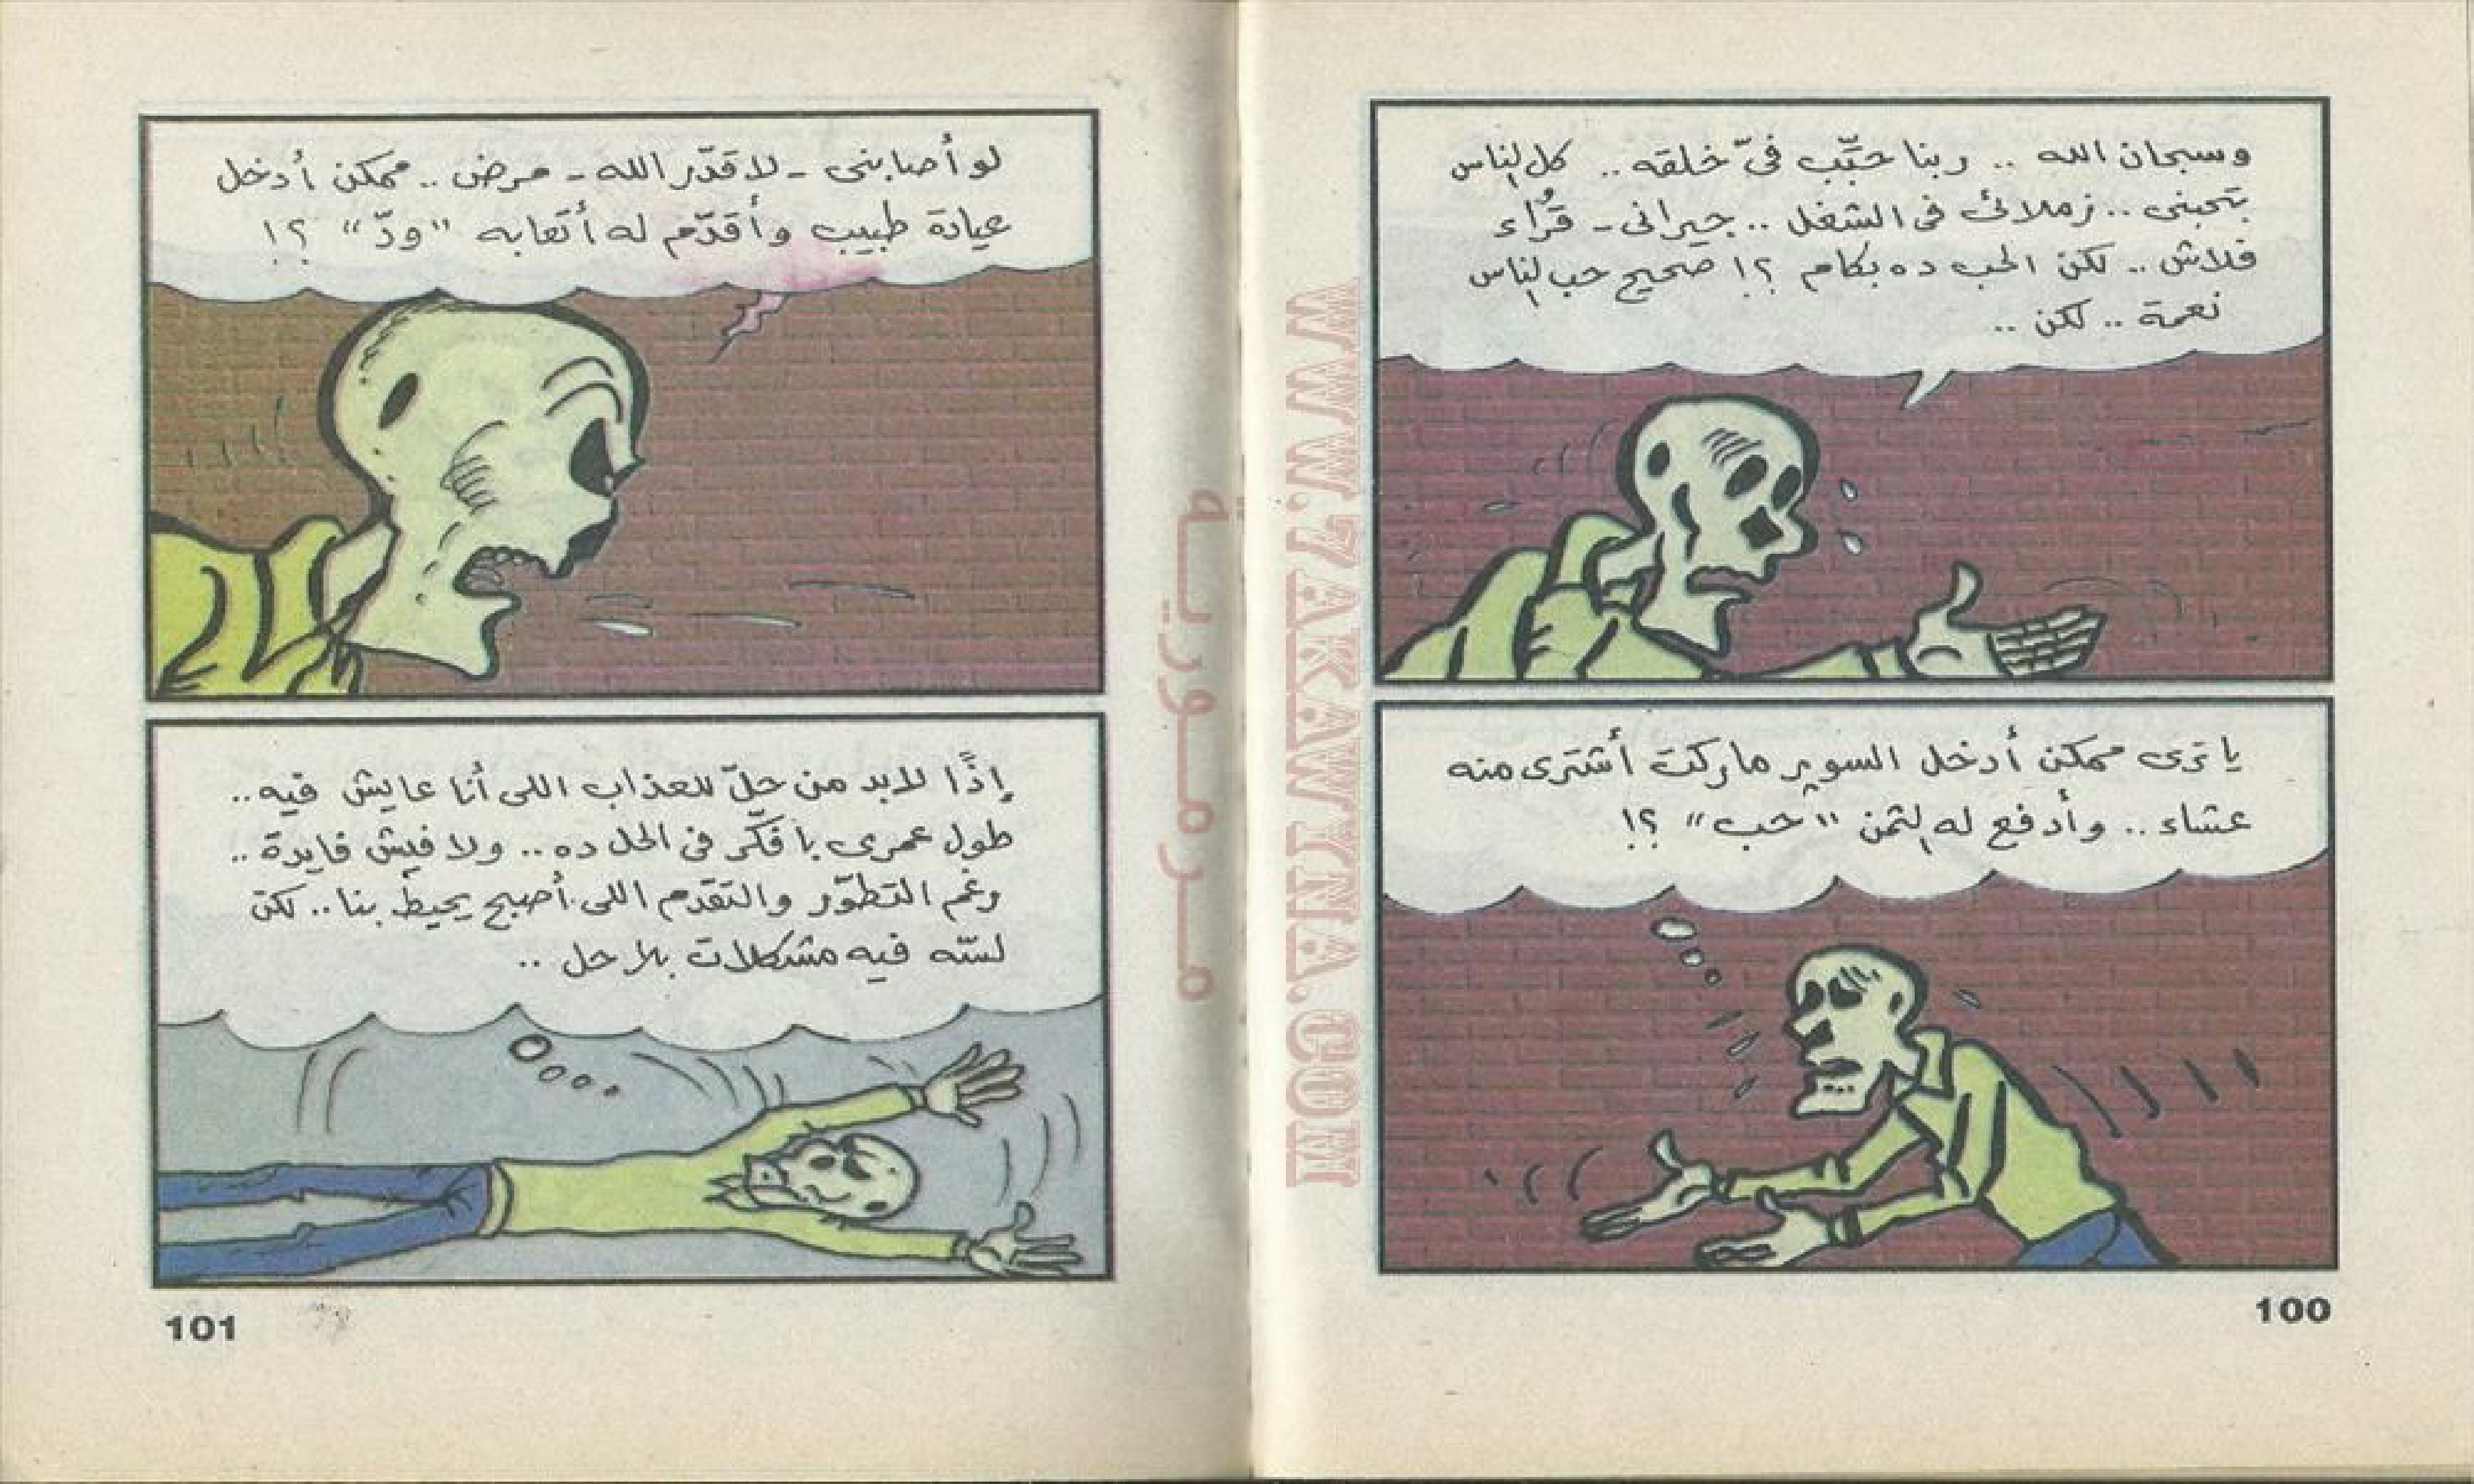 وسبحان الله .. ربنا حبِّب فىّ خلقه .. كل الناس
بتحبنى .. زملائى فى الشغل .. جيرانى - قُرَّاء
فلاش .. لكن الحب ده بكام ؟! صحيح حب الناس
نعمة .. لكن ..
يا ترى ممكن أدخل السوبر ماركت أشترى منه
عشاء .. وأدفع له الثمن "حب" ؟!
100
لو أصابنى - لا قدّر الله - مرض .. ممكن أدخل
عيادة طبيب وأقدّم له أتعابه "ودّ" ؟!
إذًا لابد من حلّ للعذاب اللى أنا عايش فيه ..
طول عمرى بافكّر فى الحل ده .. ولا فيش فايدة ..
رغم التطوّر والتقدم اللى أصبح يحيط بنا .. لكن
لسّه فيه مشكلات بلا حل ..
101
مرمورية
WWW.7AKAWINA.COM